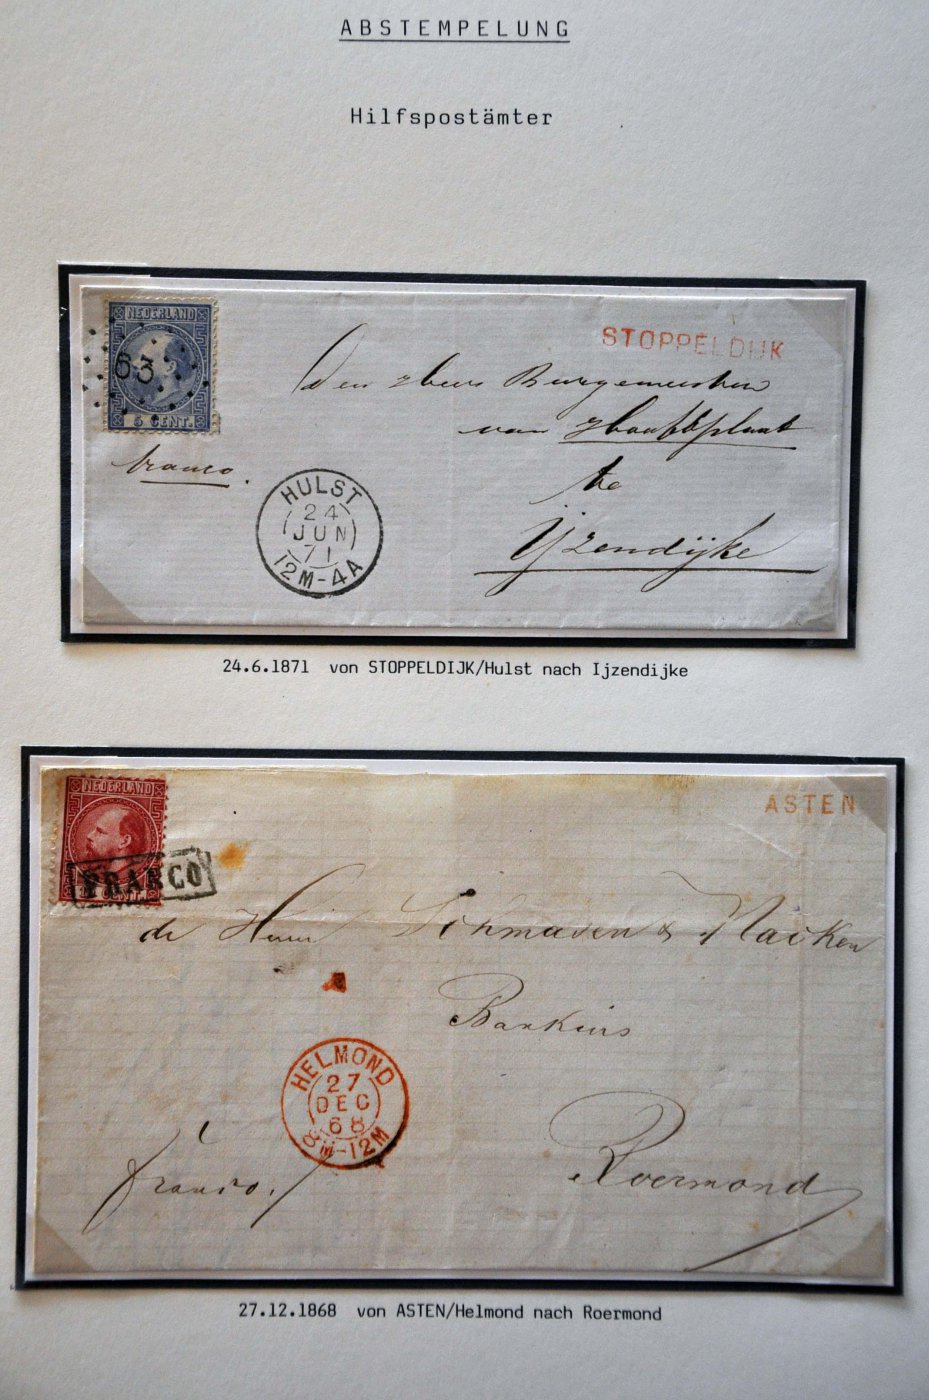 ABSTEMPELUNG
Hilfspostämter
NEDERLAND
63
5 CENT.
STOPPELDIJK
Den Heer Burgemeester
van Hoofdplaat
te
Ijzendijke
franco.
HULST
24
JUN
71
12M-4A
24.6.1871 von STOPPELDIJK/Hulst nach Ijzendijke
NEDERLAND
FRANCO
CENT.
ASTEN
de Heeren & Macken
Bankiers
HELMOND
27
DEC
68
8M-12M
franco.
Roermond
27.12.1868 von ASTEN/Helmond nach Roermond